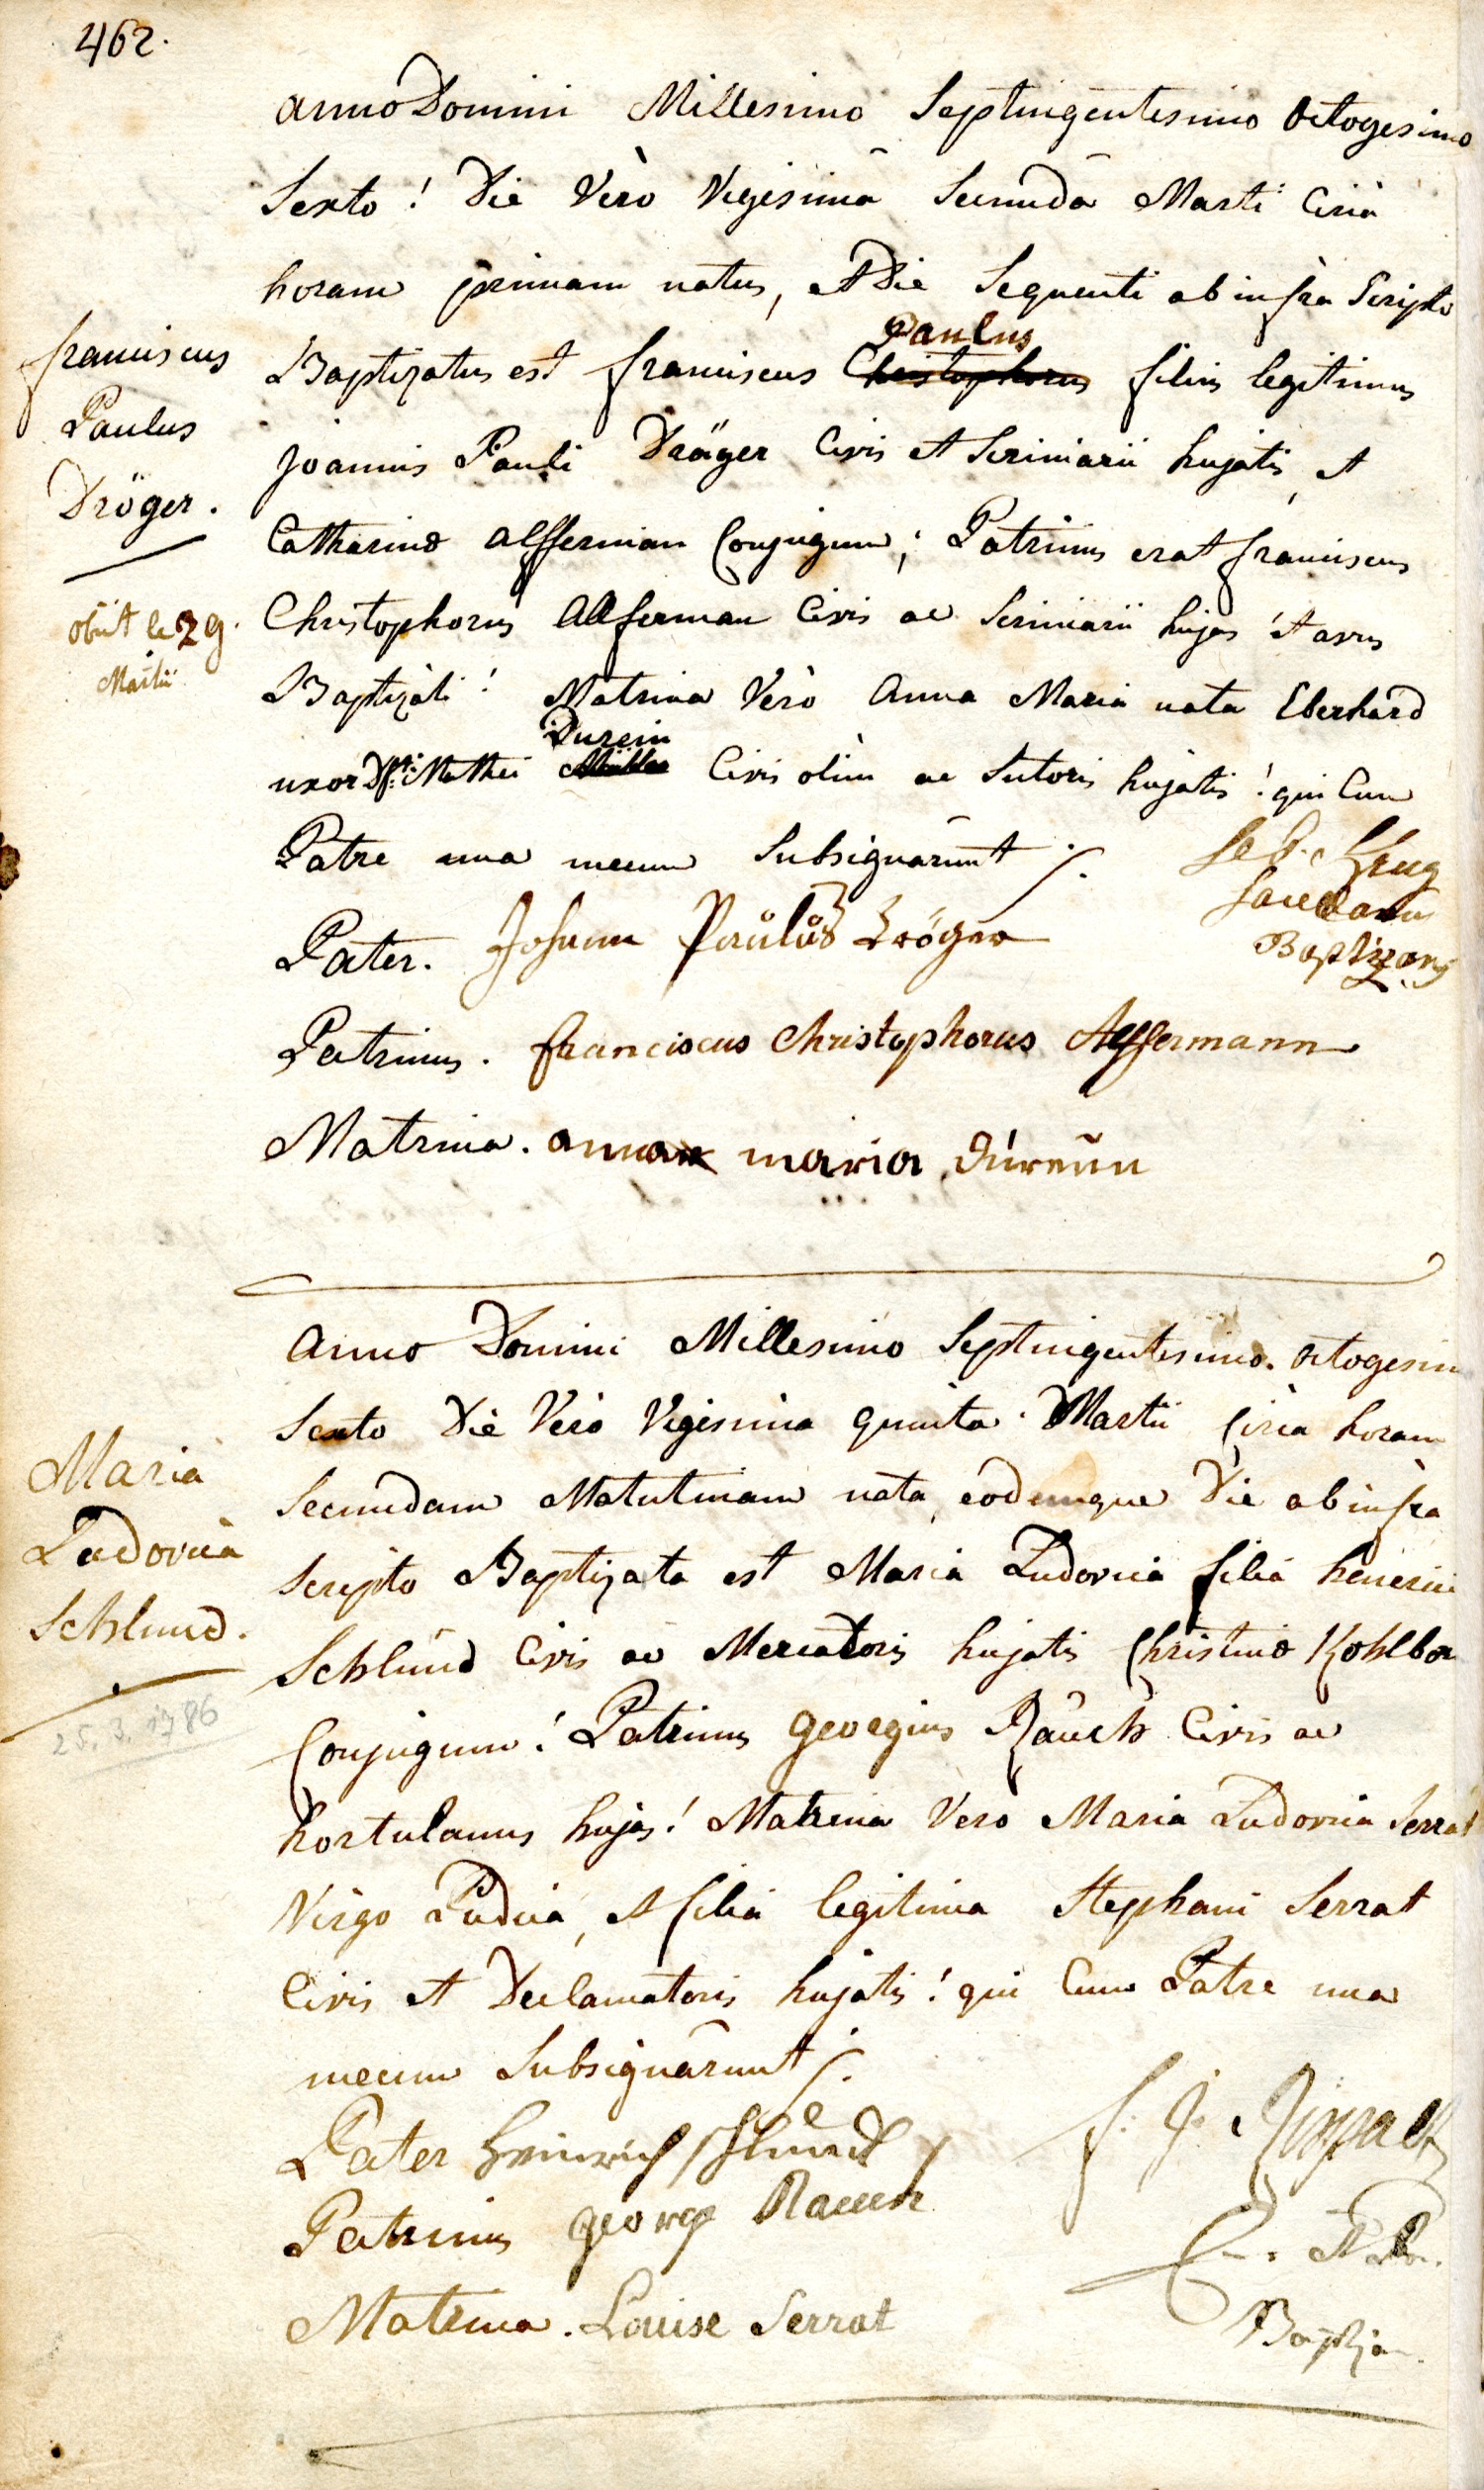 462.
anno Domini Millesimo Septingentesimo octogesimo
Sexto! Die Verò Vigesimâ Secunda Marti Circà
horam primam natus, et Die Sequenti ab infra Scripto
Paulus
Baptizatus est franciscus Christophorus filius legitimus
joannis Pauli Dräger Civis et Scriniarii hujatis, et
Catharinæ Afferman Conjugum; Patrinus erat franciscus
Christophorus Afferman Civis ac Scriniarii hujas et avus
Baptizati! Matrina Verò Anna Maria nata Eberhard
Durein
uxor Mathei Civis olim ac Sutoris hujatis! qui Cum
Patre una mecum Subsignârunt /.
franciscus
Paulus
Dröger.
obiit le 29.
Martii
Seb. Krug
Sacellanus
Baptizans
Pater. Johann Paulus Dröger
Patrinus. franciscus Christophorus Affermann
Matrina. anna maria düreün
Anno Domini Millesimo Septingentesimo octogesim
Sexto Die Verò Vigesima quinta Martii Circa horam
Secundam Matutinam nata, eodemque Die ab infra
Scripto Baptizata est Maria Ludovica filia henerici
Schlund Civis ac Mercatoris hujatis Christinæ Kohlbor
Conjugum! Patrinus georgius Rauch Civis ac
hortulanus hujas! Matrina Verò Maria Ludovica Serrat
Virgo Pudica, et filia legitima Stephani Serrat
Civis et Declamatoris hujatis! qui Cum Patre una
mecum Subsignârunt /.
Maria
Ludovica
Schlund.
25.3.1786
Pater Heinrich Schlund
Patrinus georg Rauch
Matrina. Louise Serrat
f. J.
Baptizan.